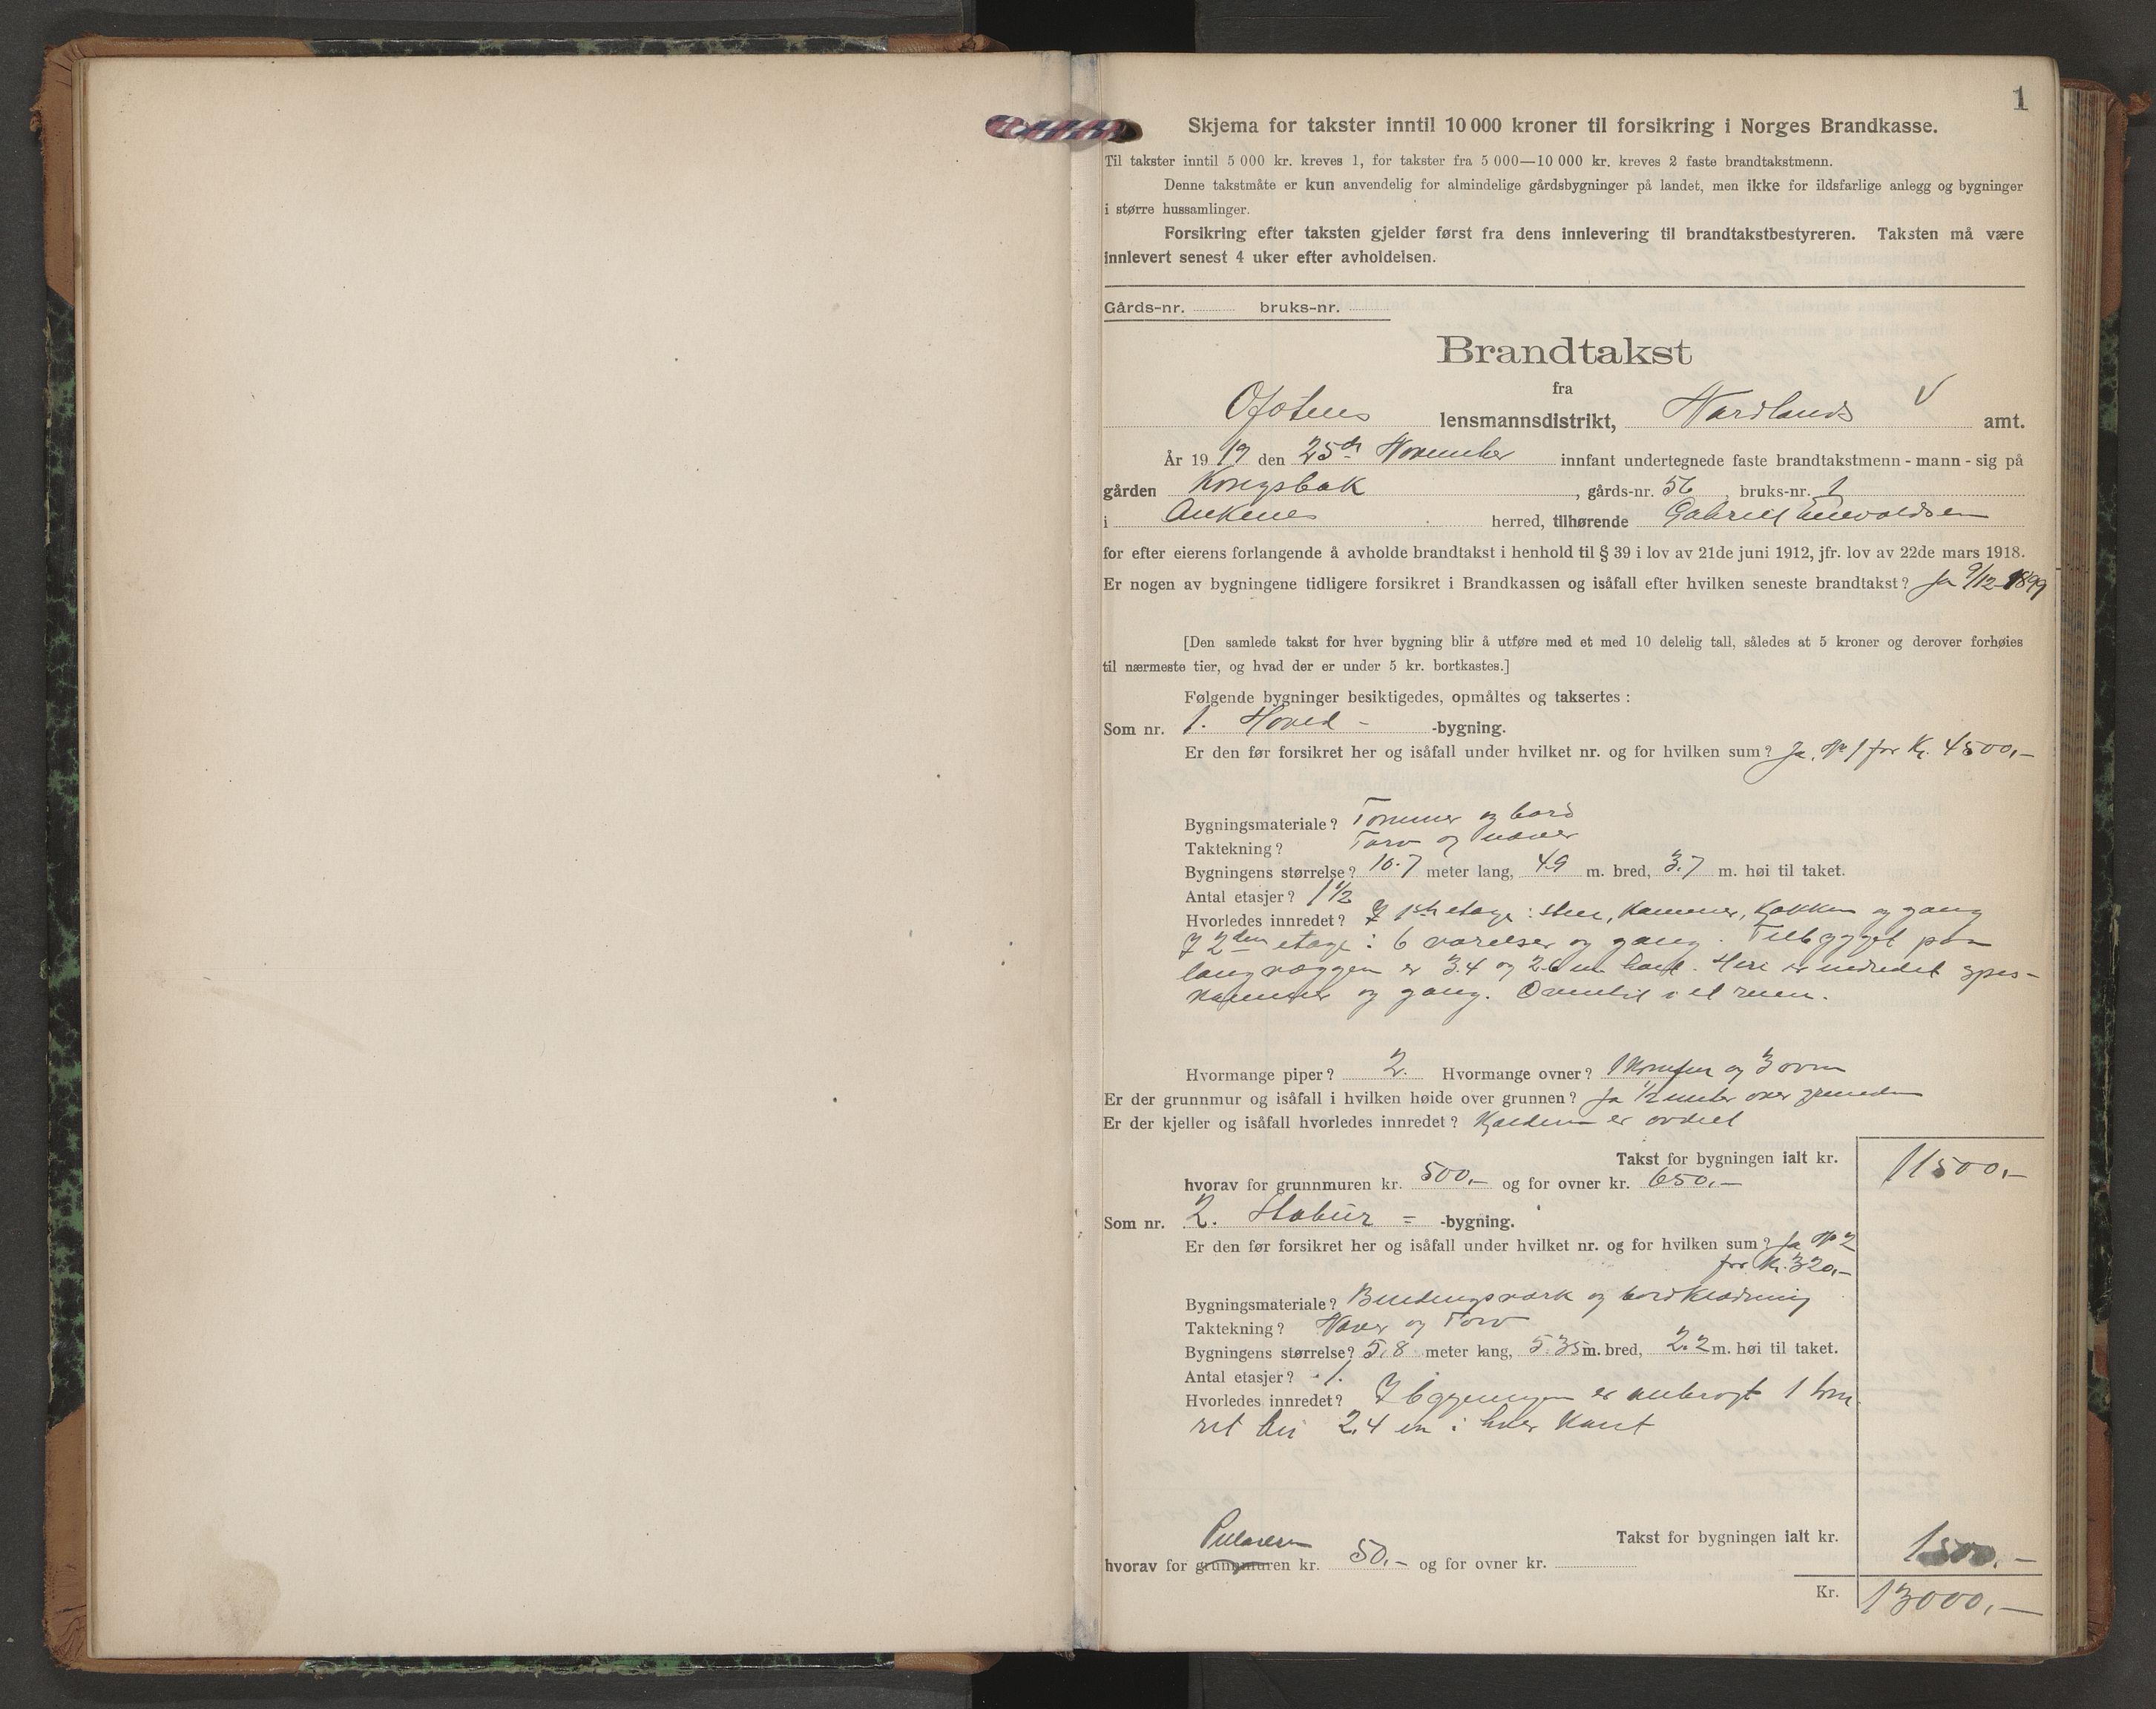 1
Skjema for takster inntil 10 000 kroner til forsikring i Norges Brandkasse.
Til takster inntil 5 000 kr. kreves 1, for takster fra 5 000—10 000 kr. kreves 2 faste brandtakstmenn.
Denne takstmåte er kun anvendelig for almindelige gårdsbygninger på landet, men ikke for ildsfarlige anlegg og bygninger
i større hussamlinger.
Forsikring efter taksten gjelder først fra dens innlevering til brandtakstbestyreren. Taksten må være
innlevert senest 4 uker efter avholdelsen.
Gårds-nr. bruks-nr.
Brandtakst
fra
Ofotens lensmannsdistrikt, Nordlands amt.
År 1919 den 25de November innfant undertegnede faste brandtakstmenn - mann - sig på
gården Kongsbak, gårds-nr. 56, bruks-nr. 1
i Ankenes herred, tilhørende Gabriel Enevoldsen
for efter eierens forlangende å avholde brandtakst i henhold til § 39 i lov av 21de juni 1912, jfr. lov av 22de mars 1918.
Er nogen av bygningene tidligere forsikret i Brandkassen og isåfall efter hvilken seneste brandtakst? Ja 9/12-1899
[Den samlede takst for hver bygning blir å utføre med et med 10 delelig tall, således at 5 kroner og derover forhøies
til nærmeste tier, og hvad der er under 5 kr. bortkastes.]
Følgende bygninger besiktigedes, opmåltes og taksertes :
Som nr. 1. Hoved - -bygning.
Er den før forsikret her og isåfall under hvilket nr. og for hvilken sum? Ja, No 1 for Kr. 4500,-
Bygningsmateriale? Tømmer og bord
Taktekning? Torv og næver
Bygningens størrelse? 10.7 meter lang, 4.9 m. bred, 3.7 m. høi til taket.
Antal etasjer? 1 1/2
Hvorledes innredet? I 1ste etage: stue, kammer, kjøkken og gang
I 2den etage: 6 værelser og gang. Tilbygget paa
langvæggen er 3.4 og 2.6 m bred. Her er indredet spis-
kammer og gang. Oventil i et rum.
Hvormange piper? 2. Hvormange ovner? 1 komfur og 3 ovne
Er der grunnmur og isåfall i hvilken høide over grunnen? Ja 1/2 meter over grunden
Er der kjeller og isåfall hvorledes innredet? Kjælderen er ordelt
Takst for bygningen ialt kr. 11500,-
hvorav for grunnmuren kr. 500,- og for ovner kr. 650,-
Som nr. 2. Stabur = -bygning.
Er den før forsikret her og isåfall under hvilket nr. og for hvilken sum? Ja No 2
for Kr. 320,-
Bygningsmateriale? Bindingsværk og bordklædning
Taktekning? Næver og Torv
Bygningens størrelse? 5,8 meter lang, 5.35 m. bred, 2.2 m. høi til taket.
Antal etasjer? 1.
Hvorledes innredet? I bygningen er anbragt 1 tøm
ret 2.4 m i hver kant
Pillarern
Takst for bygningen ialt kr. 1500.-
hvorav for grunnmuren kr. 50,- og for ovner kr.
Kr. 13000,-